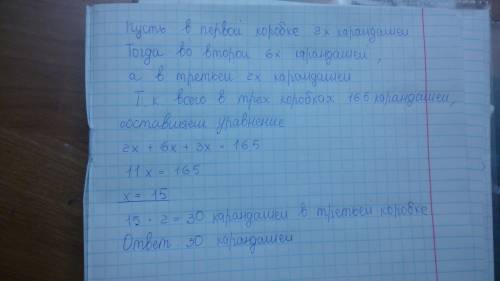 Пусть в первой коробке 2x карандашей
Тогда во второй 6x карандашей,
а в третьей 2x карандашей
Т.к всего в трех коробках 165 карандашей,
составляем уравнение
2x + 6x + 3x = 165
11x = 165
x = 15
15 · 2 = 30 карандашей в третьей коробке
Ответ 30 карандашей